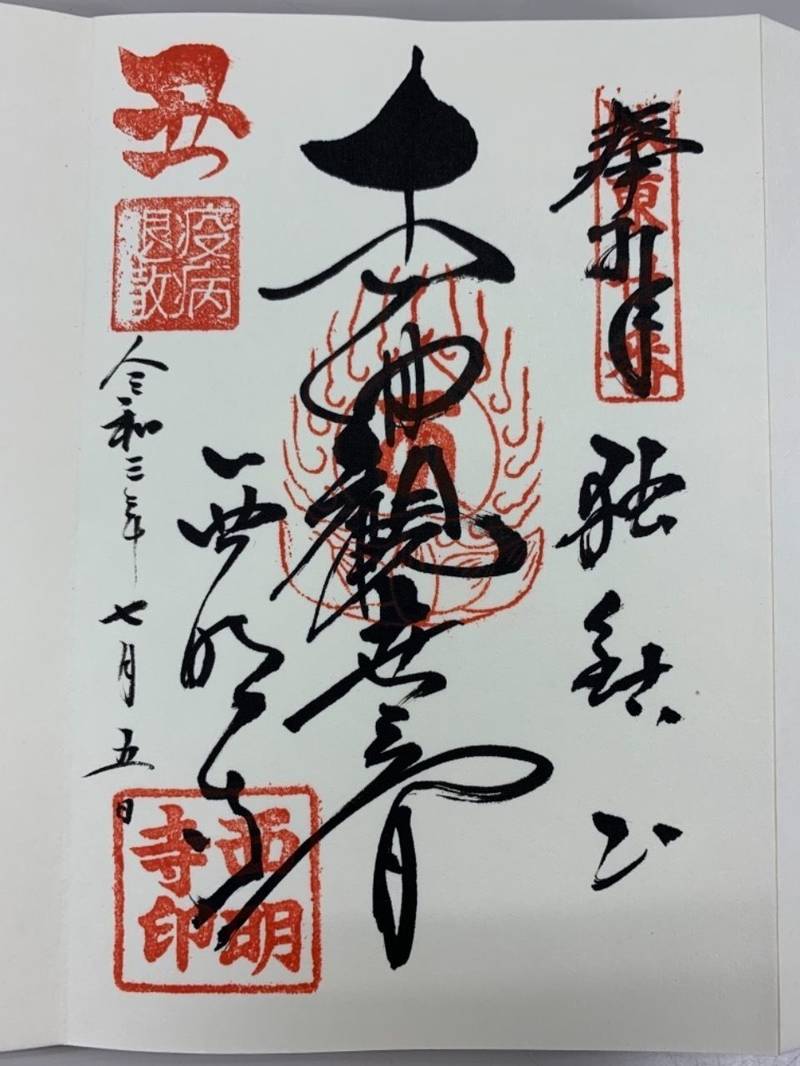 奉拝
獨鈷山
十一面觀世音
西明寺
西明寺印
丑
疫病退散
令和三年七月五日